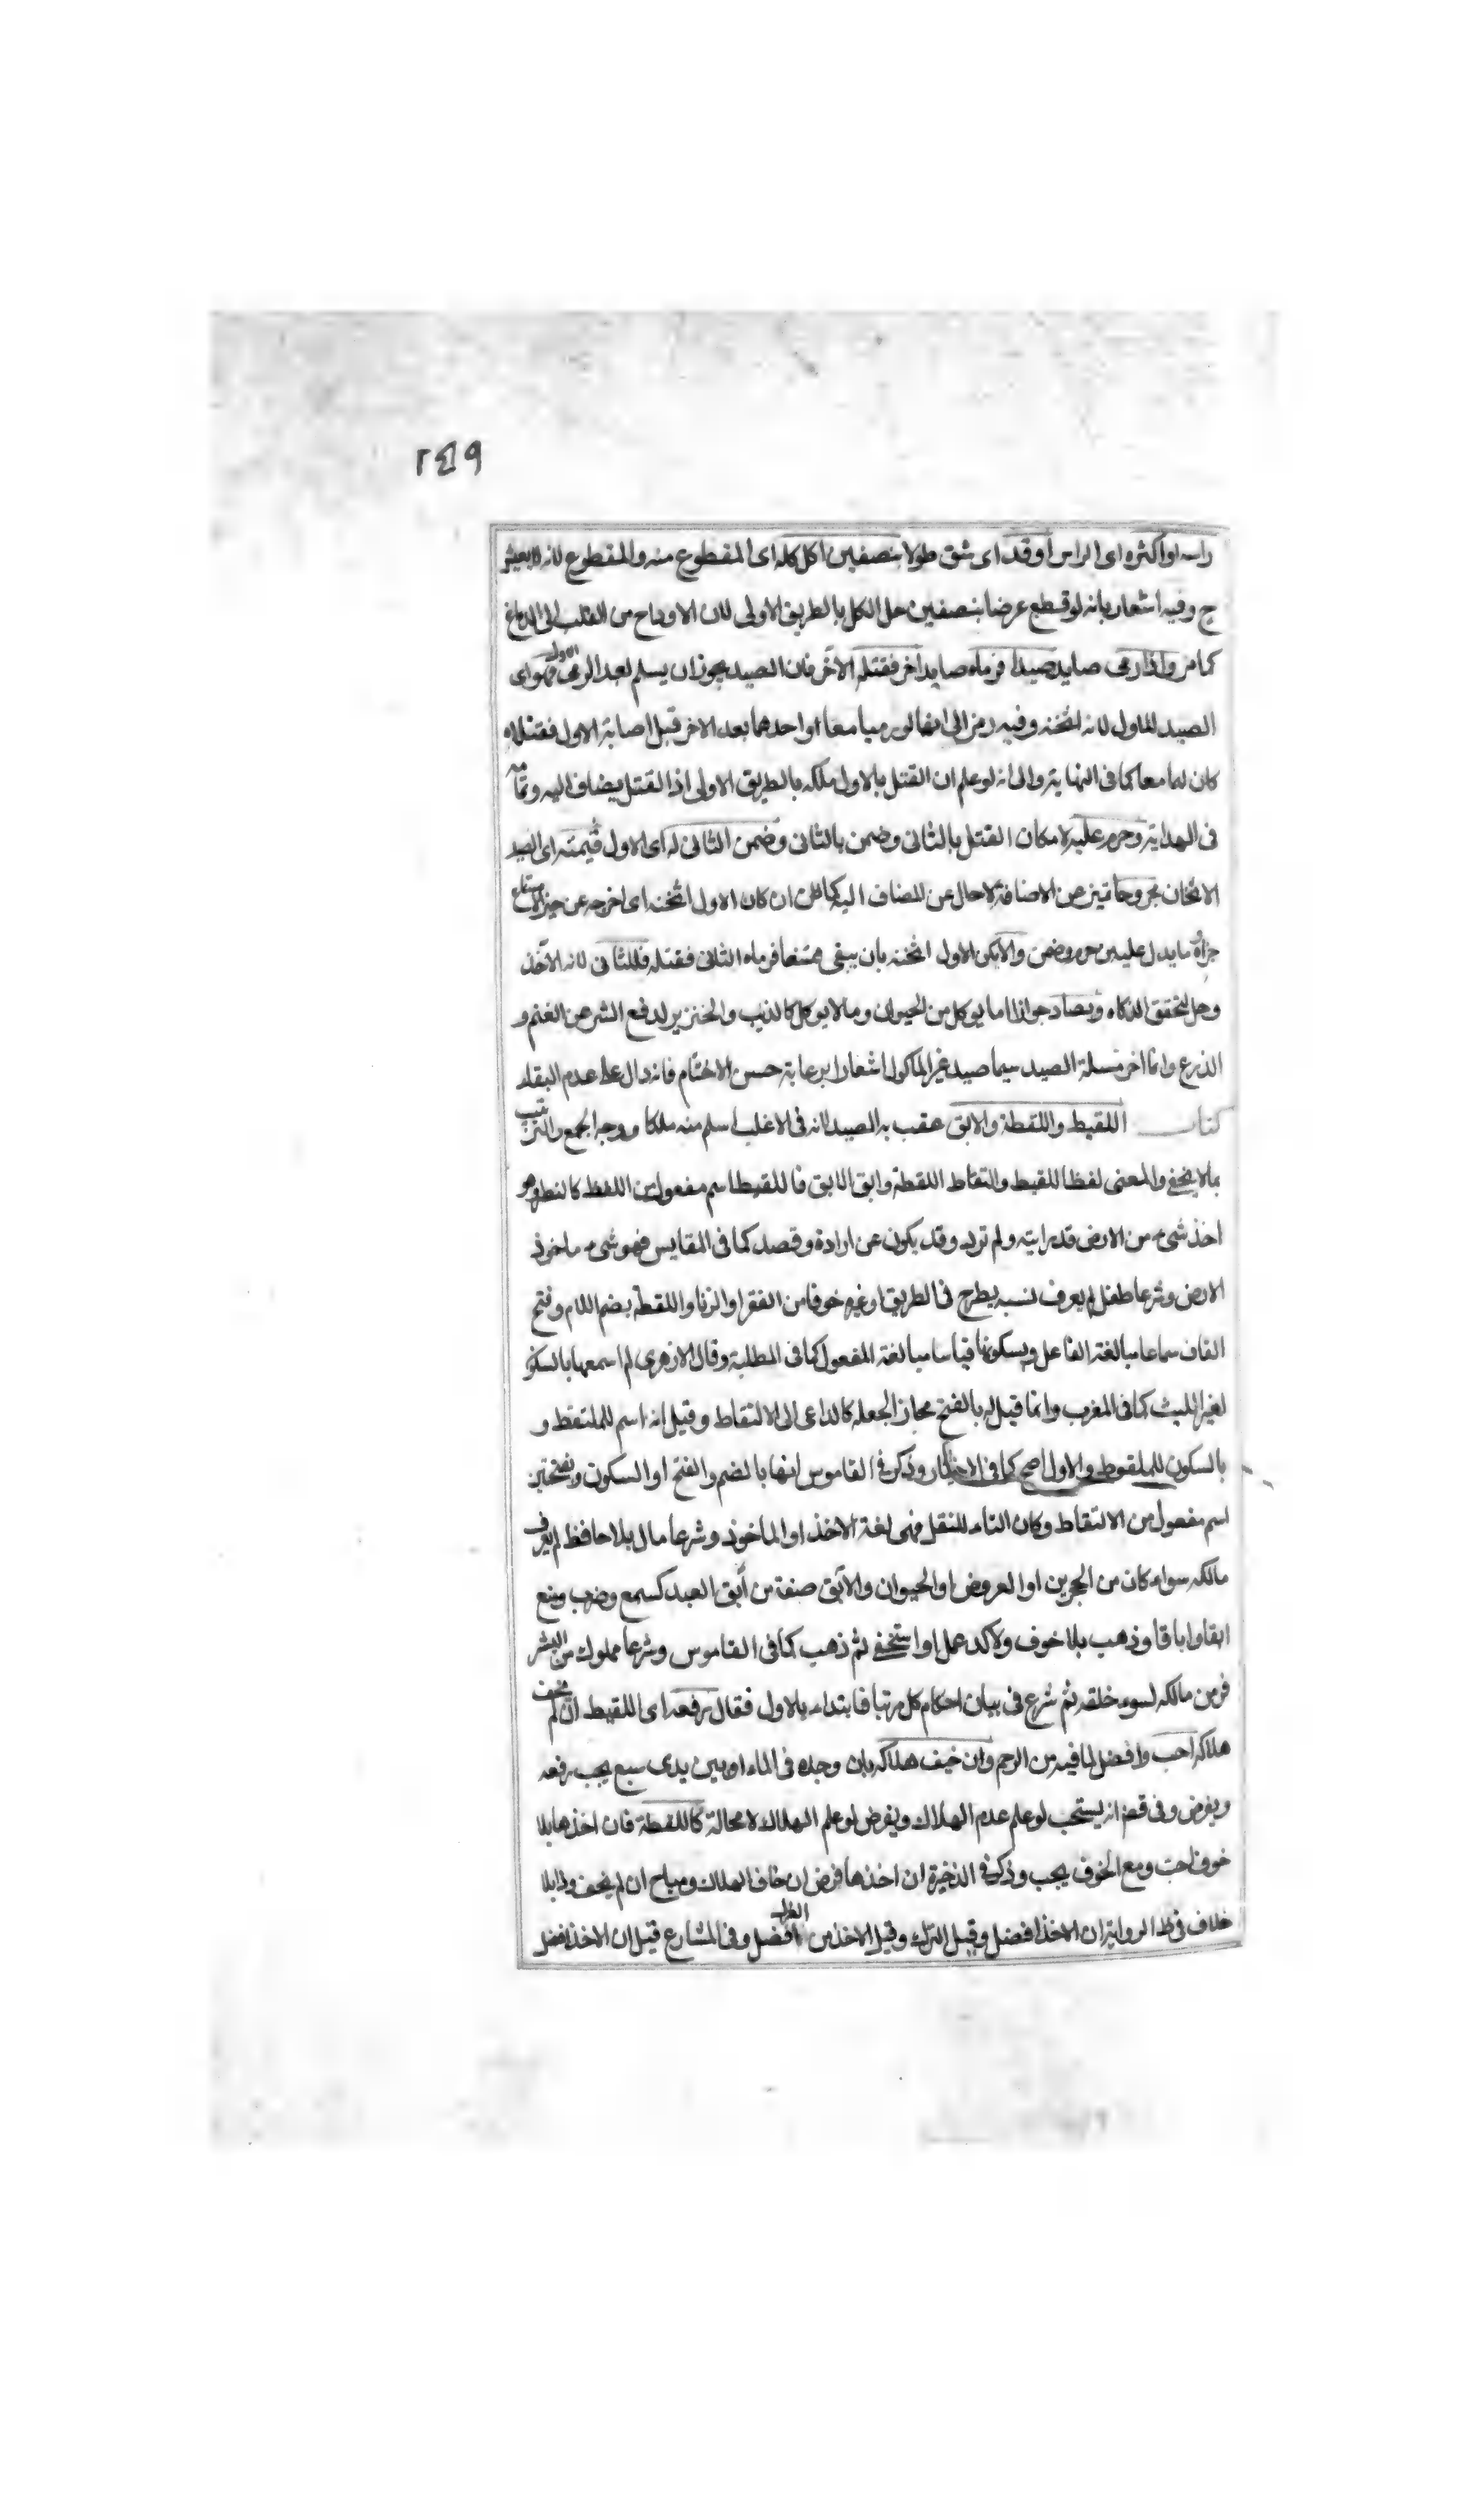 ٢٤٩
راسه او اكثره اى الراس او قد اى شق طولا بنصفين اكل كله اى المقطوع منه والمقطوع لانه لا يعيش
ح وفيه اشعار بانه لو قطع عرضا بنصفين حل الكل بالطريق الاولى لان الاوداج من القلب الى الدماغ
كما مر واذا رمى صايد صيدا فرماه صايد اخر فقتله الآخر فان الصيد يجوز ان يسلم بعد الرمى الاول فهو اى
الصيد للاول لانه اثخنه وفيه رمز الى انهما لو رميا معا او احدهما بعد الاخر قبل اصابة الاول فقتلاه
كان لهما معا كما فى النهاية والى انه لو علم ان القتل بالاول ملكه بالطريق الاولى اذ القتل يضاف اليه وتمامه
فى الهداية وحرم عليه لامكان القتل بالثانى وضمن بالثانى وضمن الثانى له اى الاول قيمته اى الصيد
الاثخان مجروحا تميز عن الاضافة لا حال عن المضاف اليه كما ظن ان كان الاول اثخنه اى اخرجه عن حيز الامتناع
جزاؤه ما يدل عليه من حرم وضمن والا يكن الاول اثخنه بان يبقى ممتنعا فرماه الثانى فقتله فللثانى لانه الآخذ
وحل لتحقق الذكاه ويصاد جوازا ما يوكل من الحيوان وما لا يوكل كالذئب والخنزير لدفع الشر عن الغنم و
الزرع وانما اخر مسئلة الصيد سيما صيد غير الماكول اشعارا برعاية حسن الاختتام فانه دال على عدم البقاء
كتاب اللقيط واللقطة والابق عقب به الصيد لانه فى الاغلب اسلم منه ملكا ووجه الجمع والترتيب
بما لا يخفى والمعنى لفظا للقيط والتقاط اللقطة وابق الابق فاللقيط اسم مفعول من اللقط كالنصر وهو
اخذ شىء من الارض قد رايته ولم ترد وقد يكون عن ارادة وقصد كما فى المقايس فهو شىء ماخوذ
الارض وشرعا طفل لم يعرف نسبه يطرح فى الطريق او غيره خوفا من الفقر او الزنا واللقطة بضم اللام وفتح
القاف سماعا مبالغة الفاعل وبسكونها قياسا مبالغة المفعول كما فى الطلبة وقال الازهرى لم اسمعها بالسكون
لغير الليث كما فى المغرب وانما قيل له بالفتح مجازا لجعله كالداعى الى الالتقاط وقيل انه اسم للملتقط و
بالسكون للملقوط والاول اصح كما فى الاختيار وذكر فى القاموس انها بالضم والفتح او السكون وبفتحتين
اسم مفعول من الالتقاط وكان التاء للنقل فهى لغة الاخذ او الماخوذ وشرعا مال بلا حافظ لم يعرف
مالكه سواء كان من الحجرين او العروض او الحيوان والآبق صفة من أبق العبد كسمع وضرب ومنع
ابقا واباقا وذهب بلا خوف ولا كد عمل او استخفى ثم ذهب كما فى القاموس وشرعا مملوك من البشر
فر من مالكه لسوء خلقه ثم شرع فى بيان احكام كل مرتبا فابتداء بالاول فقال رفعه اى اللقيط ان لم يخف
هلاكه احب وافضل لما فيه من الرحم وان خيف هلاكه بان وجده فى الماء او بين يدى سبع يجب رفعه
ويفرض وفى قض انه يستحب لو علم عدم الهلاك ويفرض لو علم الهلاك لا محالة كاللقطة فان اخذها بلا
خوف احب ومع الخوف يجب وذكر فى الذخيرة ان اخذها فرض ان خاف الهلاك ومباح ان لم يخف وذا بلا
خلاف فى ظ الرواية ان الاخذ افضل وقيل الترك وقيل الاخذ من افضل وفى المشارع قيل ان الاخذ افضل